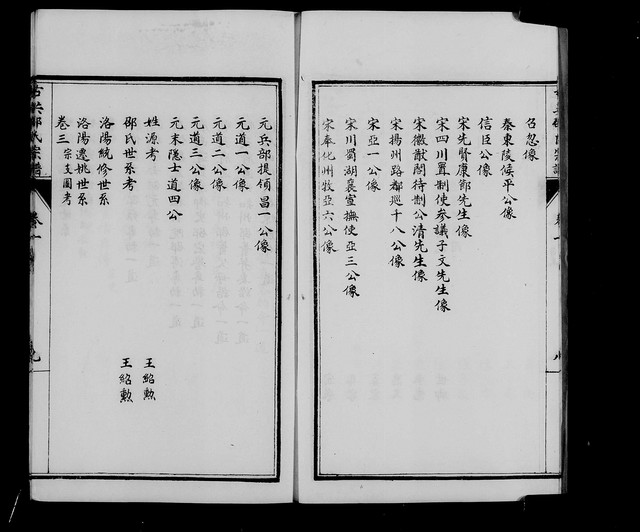 召忽像
秦東陵侯平公像
信臣公像
宋先賢康節先生像
宋四川置制使參議子文先生像
宋徽猷閣待制公清先生像
宋揚州路都巡十八公像
宋亞一公像
宋川蜀湖襄宣撫使亞三公像
宋奉化州牧亞六公像
元兵部提領昌一公像
元道一公像
元道二公像
元道三公像
元末隱士道四公
姓源考 王紹勲
邵氏世系考 王紹勲
洛陽統修世系
洛陽遷姚世系
卷三 宗支圖考
邵氏宗譜 卷一